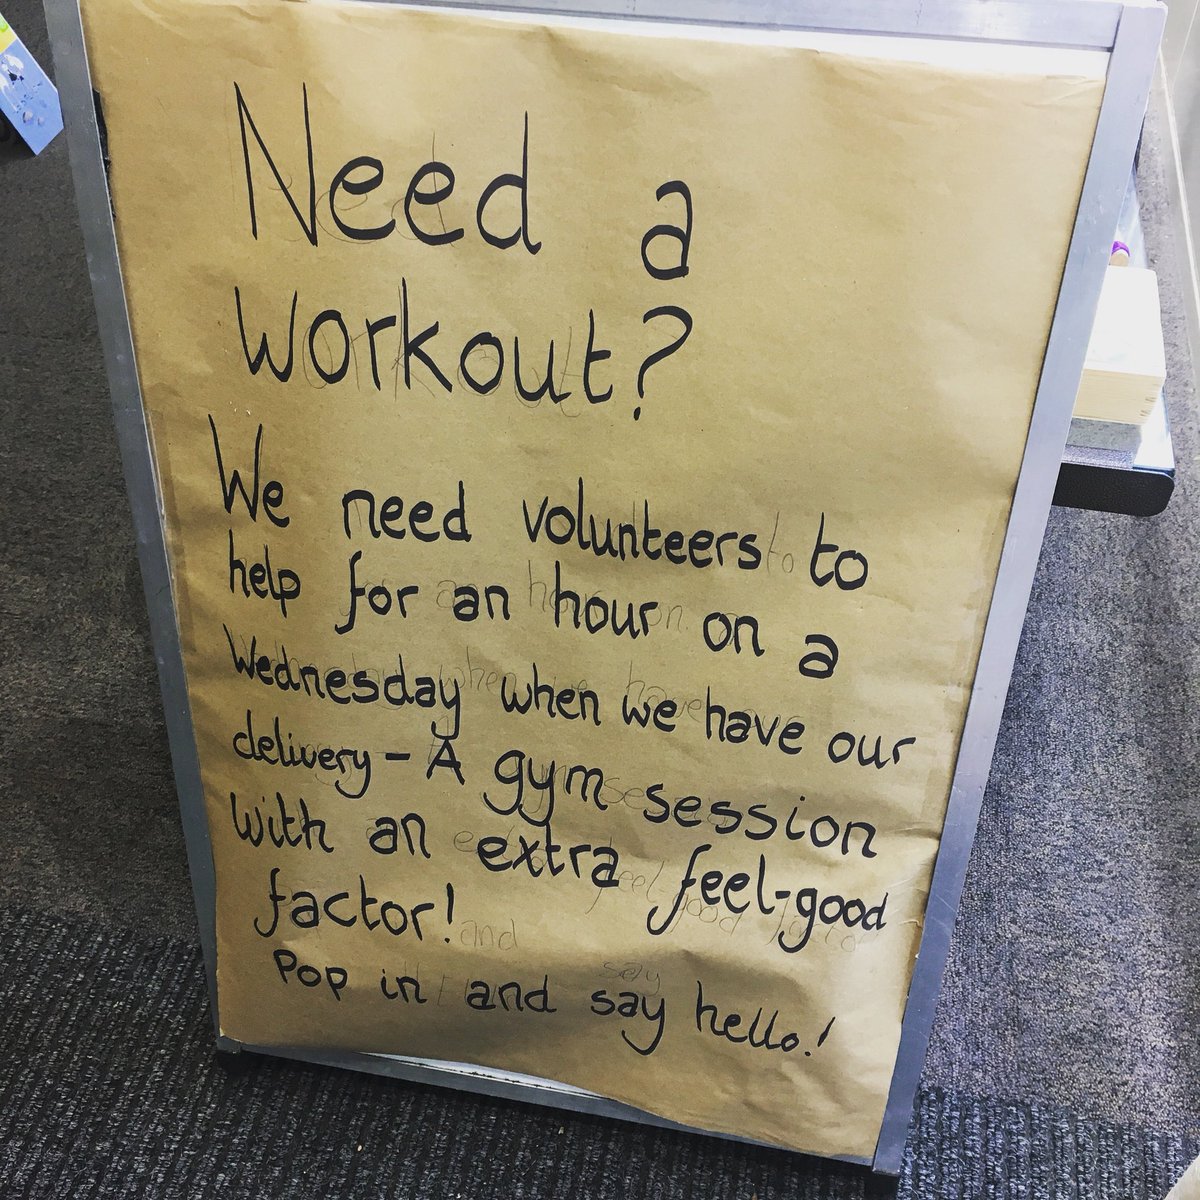 Need a
workout?
We need volunteers to
help for an hour on a
Wednesday when we have our
delivery – A gym session
with an extra feel-good
factor!
Pop in and say hello!